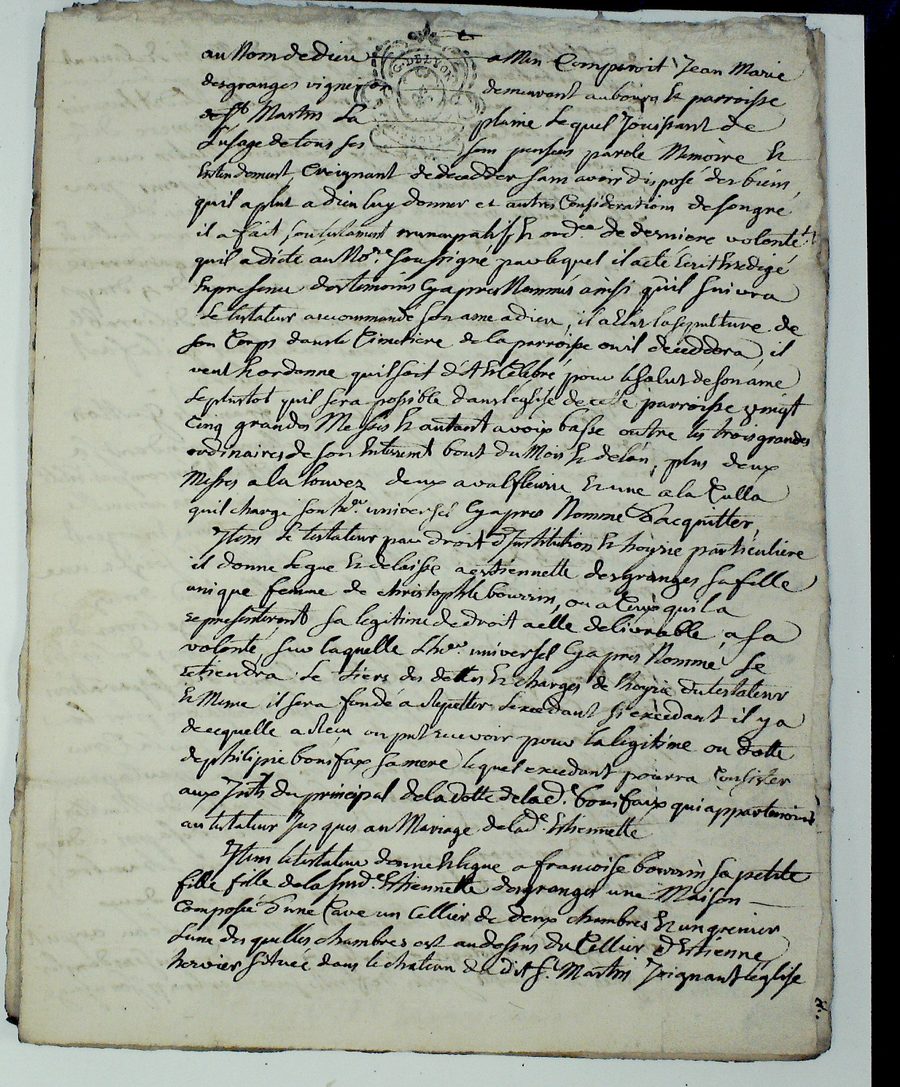 au Nom de dieu amen Comparoit Jean Marie
desgranges vigneron demeurant au bourg et parroisse
de St Martin La plaine lequel Jouissant de
Lusage de tous ses sens pensées parole Memoire Et
Entendement, Creignant de decedder sans avoir disposé des biens,
quil a plut a dieu luy donner et autres Considerations de son gré
il a fait son testament nuncupatif et ordre de derniere volonté
quil a dicté au Nore soussigné par lequel il a été Ecrit et Redigé
En presence des temoins Cy apres Nommés ainsi quil suivra
Le testateur a recommandé son ame a dieu, il a elu la sepulture de
son Corps dans le Cimetiere de la parroisse ou il deceddera, il
veut et ordonne quil soit dit et Célébré pour le salut de son ame
le plustot quil sera possible dans l'eglise de cette parroisse vingt
Cinq grandes Messes et autant a voix basse outre les trois grandes
ordinaires de son Enterrement bout du Mois et de lan, plus deux
Messes a la Louvez deux a valfleurie et une a la Culla
quil charge son her universel Cy apres Nommé d'acquitter,
Item Le testateur par droit d'Institution et hoirie particuliere
il donne legue et delaisse a estiennette desgranges sa fille
unique femme de christophle bourrin, ou a Ceux qui la
representeront sa legitime de droit a elle delivrable a sa
volonté, sur laquelle L'her universel Cy apres Nommé se
retiendra le tiers des dettes et charges de l'hoirie du testateur
Et Meme il sera fondé a repetter l'excedant si excedant il y a
de ce quelle a recu ou put recevoir pour la legitime ou dotte
de philipie bonifax sa mere lequel excedant pourra Consister
aux Intts du principal de la dotte de lad. bonifaix qui appartenoint
au testateur Jusques au Mariage de lade Estiennette
Item le testateur donne et legue a francoise bourrin sa petite
fille fille de la susde. Estiennette desgranges une Maison
Composée d'une Cave un Cellier de deux chambres et un grenier
Lune des quelles chambres est au dessus du Cellier d'Etienne
hervier située dans le chateau de dit St. Martin Joignant l'eglise